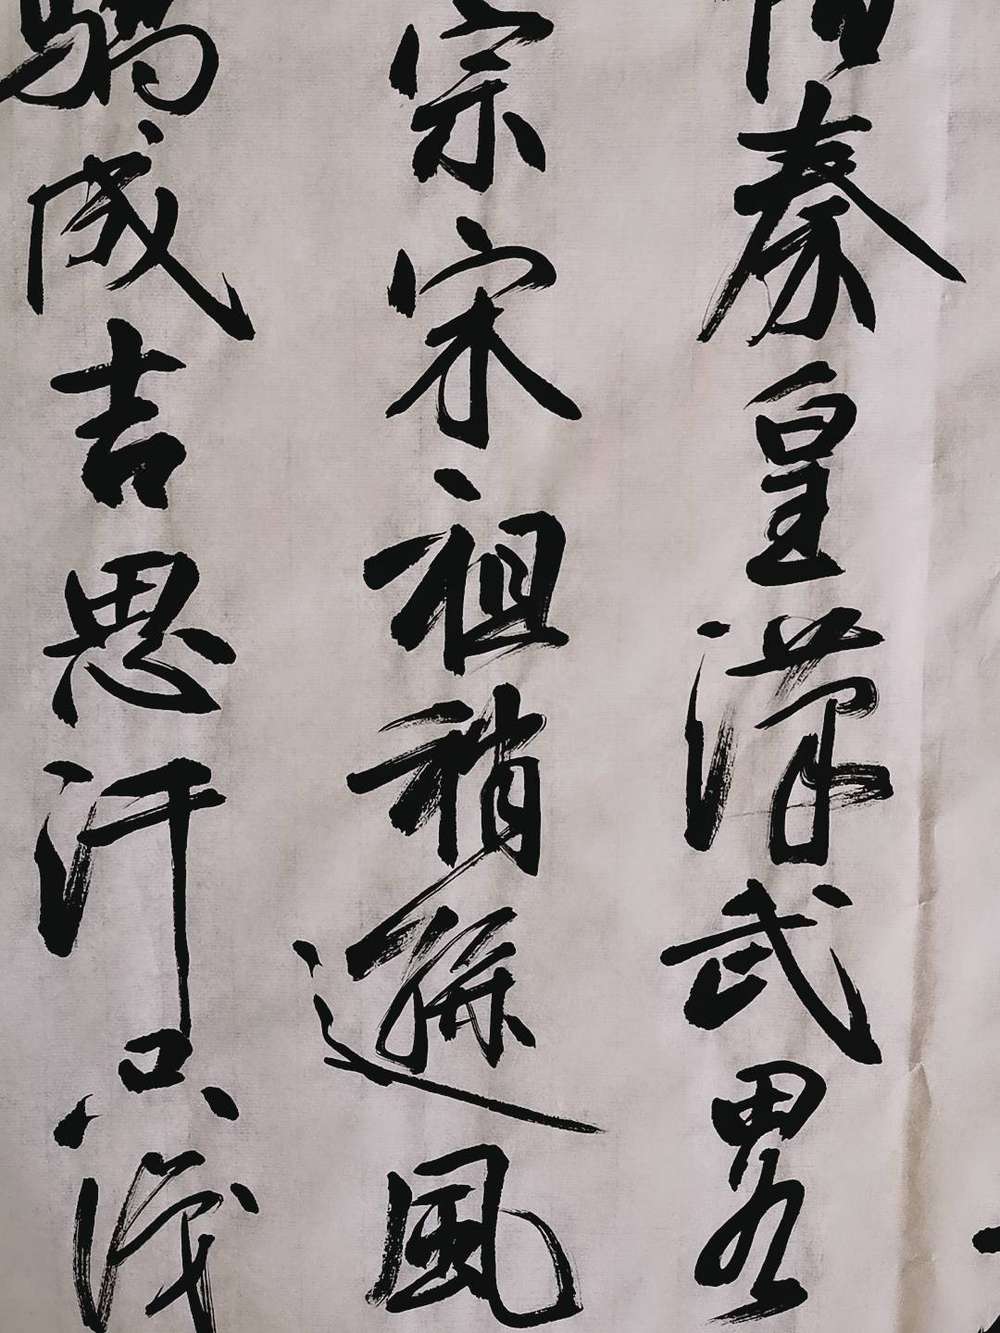 秦皇漢武畧
宗宋祖稍遜風
驕成吉思汗只識